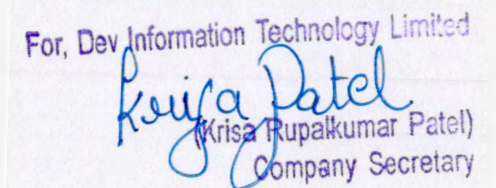 For, Dev Information Technology Limited
Krisa Patel
(Krisa Rupalkumar Patel)
Company Secretary